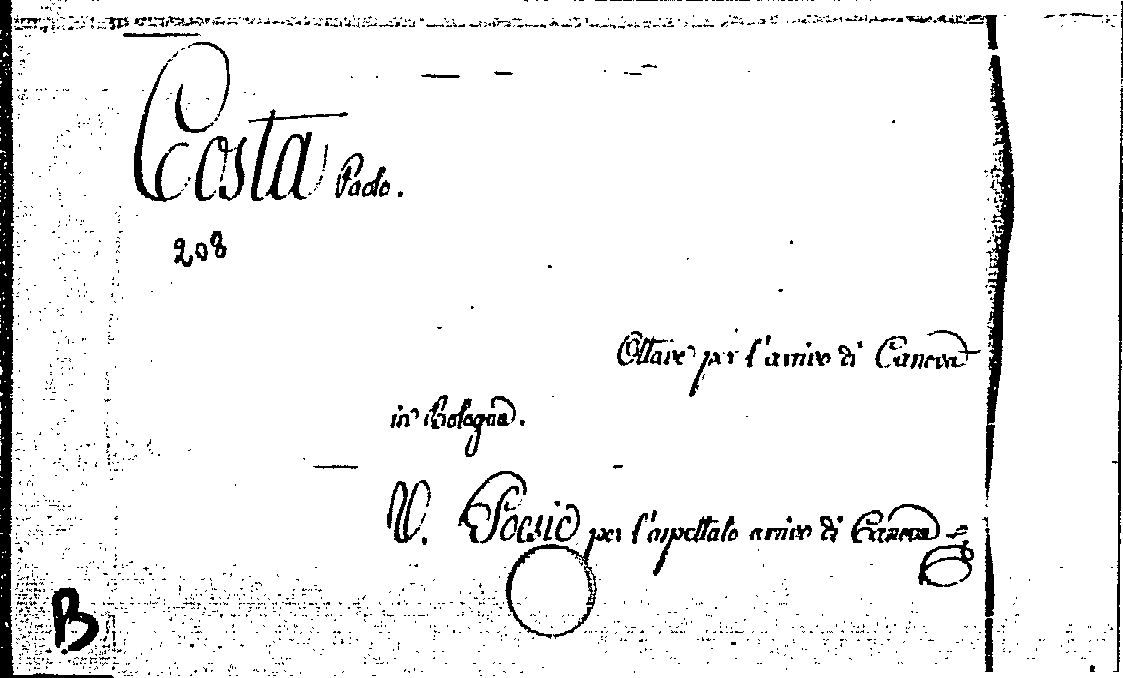 Costa Paolo.
208
Ottave per l'arrivo di Canova
in Bologna.
V. Poesie per l'aspettato arrivo di Canova
B